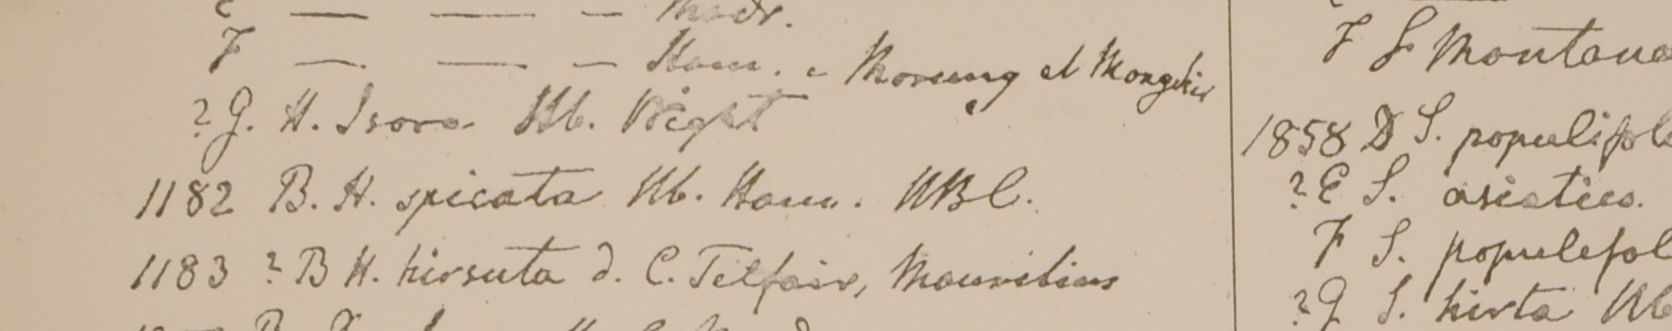 E — — — Madr.
F — — — Ham. e Morung et Monghir
? G. H. Isora Hb. Wight
1182 B. H. spicata Hb. Ham. HBC.
1183 ? B H. hirsuta d. C. Telfair, Mauritius
F S montana
1858 D S. populifol
? E S. asiatica.
F S. populifol
? G S. hirta Hb